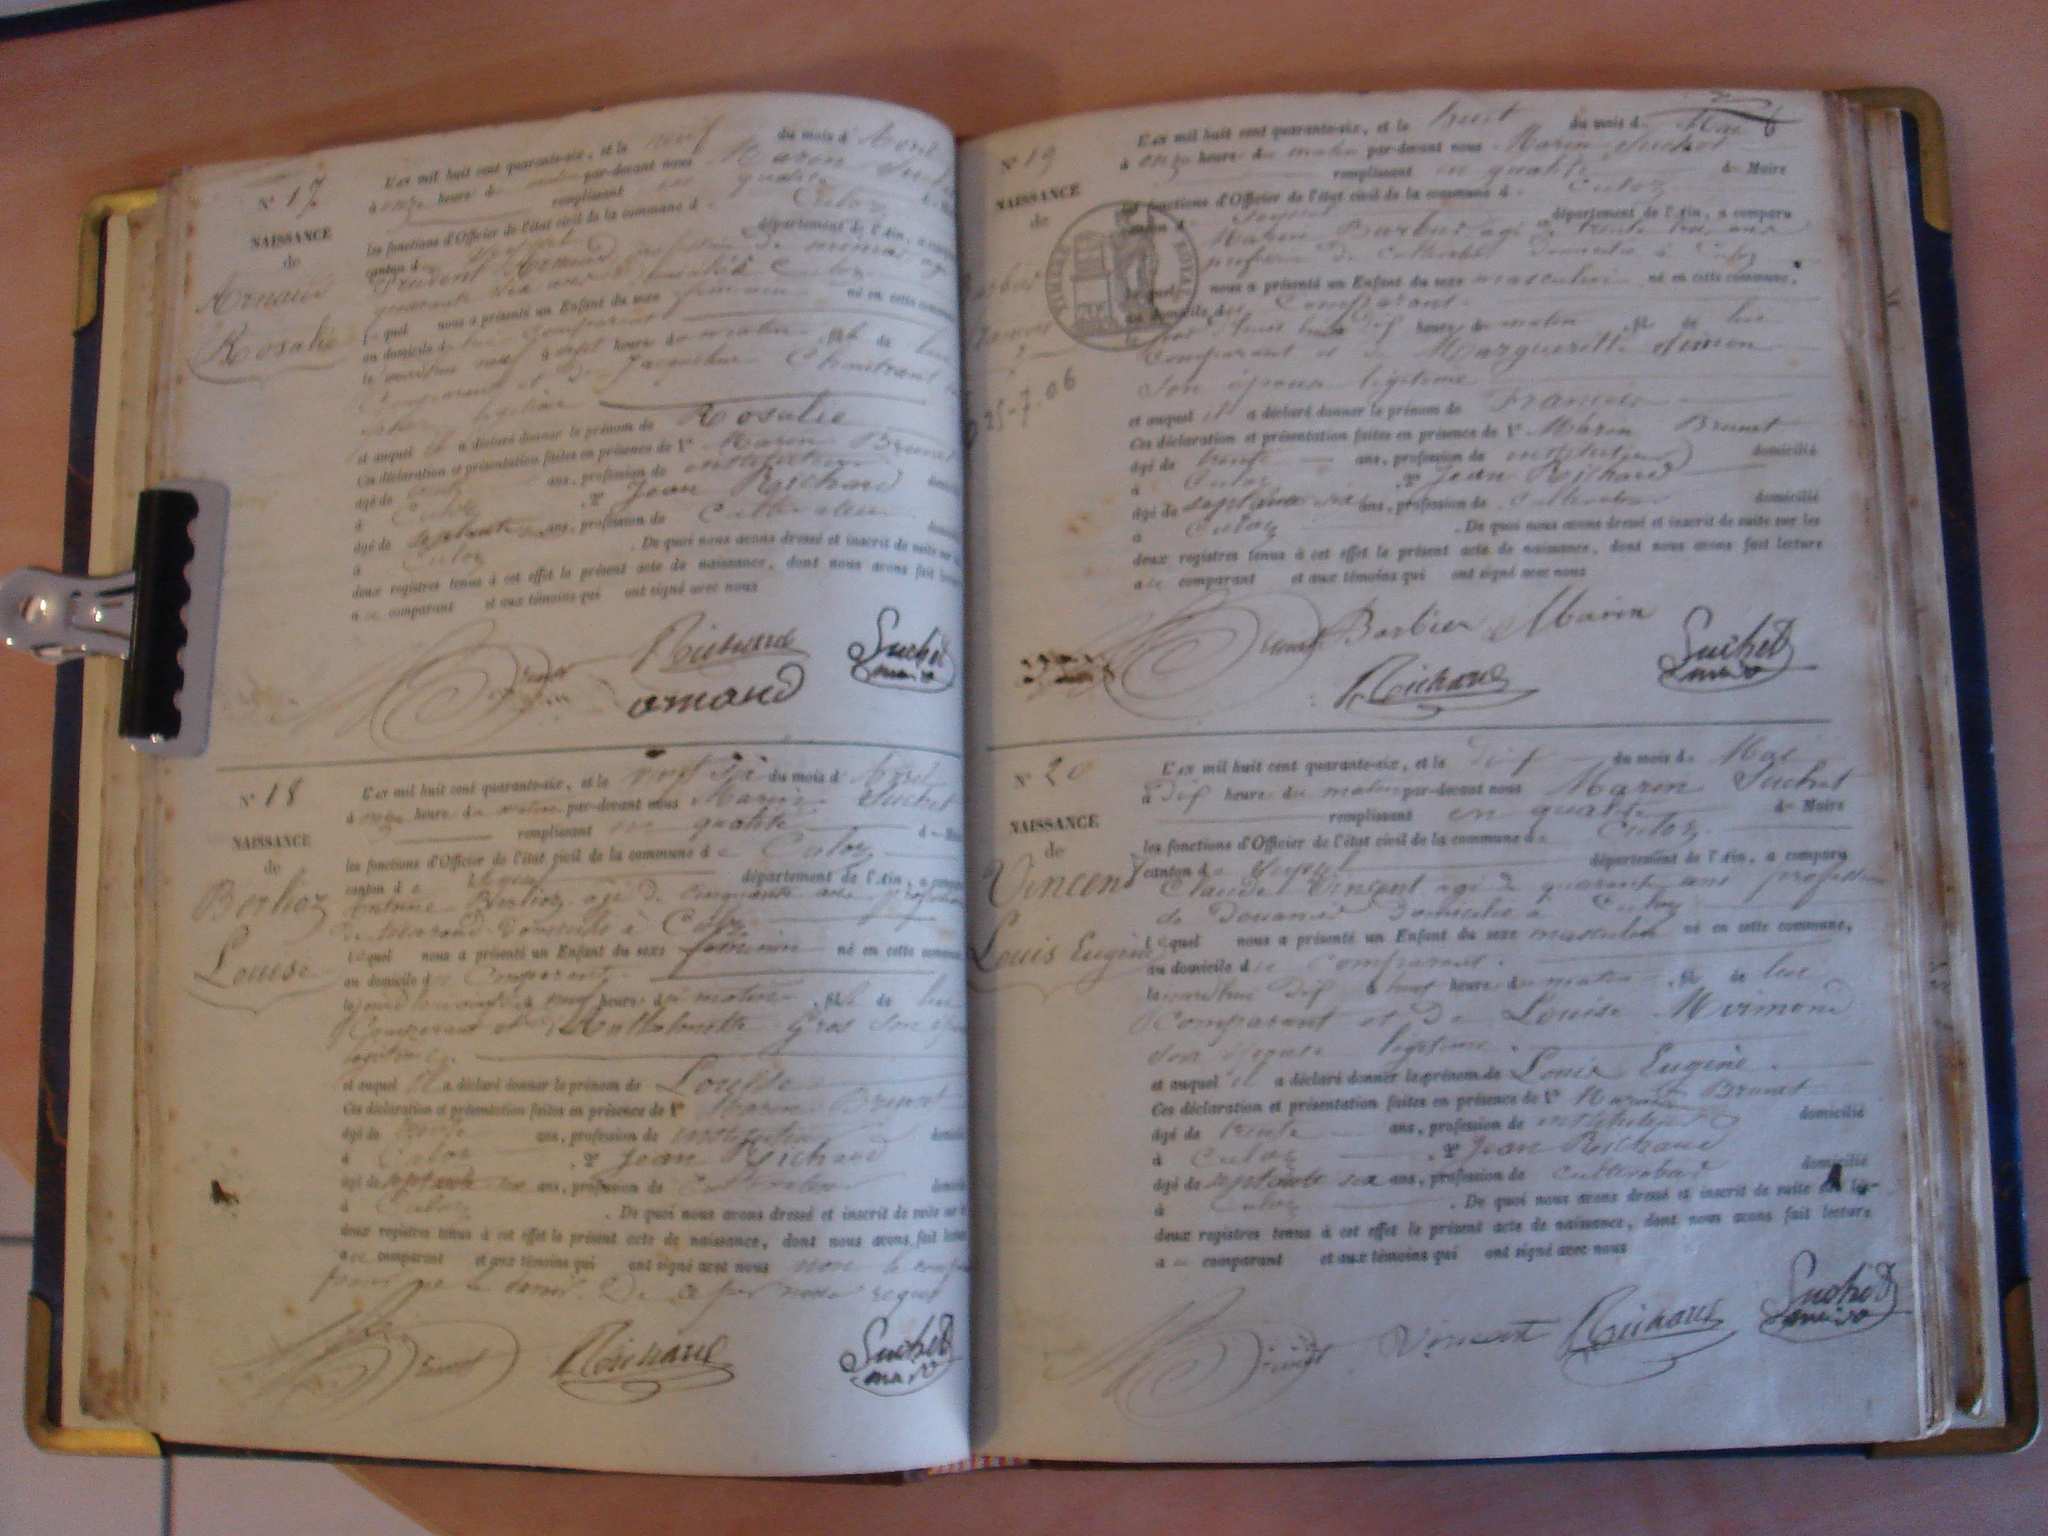 N° 17
NAISSANCE
de
Arnaud
Rosalie
L'an mil huit cent quarante-six, et le neuf du mois d'Avril
à onze heure du matin par-devant nous Marin Suchet
remplissant en qualité
les fonctions d'Officier de l'état civil de la commune de Culoz
canton de Seyssel département de l'Ain, a
Prudent profession de
quarante six ans domicilié à Culoz
lequel nous a présenté un Enfant du sexe féminin né en cette commune
au domicile du comparant
le heure du matin, fille de lui
comparant et de Jacqueline
légitime
et auquel il a déclaré donner le prénom de Rosalie
Ces déclaration et présentation faites en présence de 1° Marin Brunet
âgé de ans, profession de instituteur
à Culoz, 2° Jean Richard
âgé de septante ans, profession de Cultivateur
à Culoz. De quoi nous avons dressé et inscrit de suite sur
deux registres tenus à cet effet le présent acte de naissance, dont nous avons fait lecture
au comparant et aux témoins qui ont signé avec nous
Brunet Richard Suchet
maire
arnaud
N° 18
NAISSANCE
de
Berlioz
Louise
L'an mil huit cent quarante-six, et le vingt six du mois d'Avril
à onze heure du matin par-devant nous Marin Suchet
remplissant en qualité de Maire
les fonctions d'Officier de l'état civil de la commune de Culoz
canton de Seyssel département de l'Ain, a comparu
Antoine Berlioz agé de cinquante ans profession
de domicilié à Culoz
lequel nous a présenté un Enfant du sexe féminin né en cette commune
au domicile du Comparant
heure du matin, fille de lui
Comparant et Gros son épouse
légitime.
et auquel il a déclaré donner le prénom de Louise
Ces déclaration et présentation faites en présence de 1° Marin Brunet
âgé de trente ans, profession de instituteur
à Culoz, 2° Jean Richard
âgé de septante six ans, profession de Cultivateur
à Culoz. De quoi nous avons dressé et inscrit de suite sur
deux registres tenus à cet effet le présent acte de naissance, dont nous avons fait lecture
au comparant et aux témoins qui ont signé avec nous non le
pour ne le savoir. De ce par nous requis
Brunet Richard Suchet
maire
N° 19
NAISSANCE
de
TIMBRE ROYAL
25-7.06
L'an mil huit cent quarante-six, et le huit du mois de Mai
à onze heure du matin par-devant nous Marin Suchet
remplissant en qualité de Maire
les fonctions d'Officier de l'état civil de la commune de Culoz
canton de Seyssel département de l'Ain, a comparu
Marin Barbier agé de trente trois ans
profession de Cultivateur domicilié à Culoz
lequel nous a présenté un Enfant du sexe masculin né en cette commune,
au domicile du Comparant.
heure du matin, fils de lui
Comparant et de Marguerite Simon
Son épouse légitime
et auquel il a déclaré donner le prénom de Francois
Ces déclaration et présentation faites en présence de 1° Marin Brunet
âgé de trente ans, profession de instituteur domicilié
à Culoz, 2° Jean Richard
âgé de septante six ans, profession de Cultivateur domicilié
à Culoz. De quoi nous avons dressé et inscrit de suite sur les
deux registres tenus à cet effet le présent acte de naissance, dont nous avons fait lecture
au comparant et aux témoins qui ont signé avec nous
Brunet Barbier Marin Suchet
maire
Richard
N° 20
NAISSANCE
de
Vincent
Louis Eugène
L'an mil huit cent quarante-six, et le dix du mois de Mai
à Dix heure du matin par-devant nous Marin Suchet
remplissant en qualité de Maire
les fonctions d'Officier de l'état civil de la commune de Culoz
canton de Seyssel département de l'Ain, a comparu
Claude Vincent agé de quarante ans profession
de Douanier domicilié à Culoz
lequel nous a présenté un Enfant du sexe masculin né en cette commune,
au domicile du comparant.
heure du matin, fils de lui
Comparant et de Louise
son épouse légitime.
et auquel il a déclaré donner le prénom de Louis Eugène.
Ces déclaration et présentation faites en présence de 1° Marin Brunet
âgé de trente ans, profession de instituteur domicilié
à Culoz, 2° Jean Richard
âgé de septante six ans, profession de Cultivateur domicilié
à Culoz. De quoi nous avons dressé et inscrit de suite sur les
deux registres tenus à cet effet le présent acte de naissance, dont nous avons fait lecture
au comparant et aux témoins qui ont signé avec nous
Brunet Vincent Richard Suchet
maire